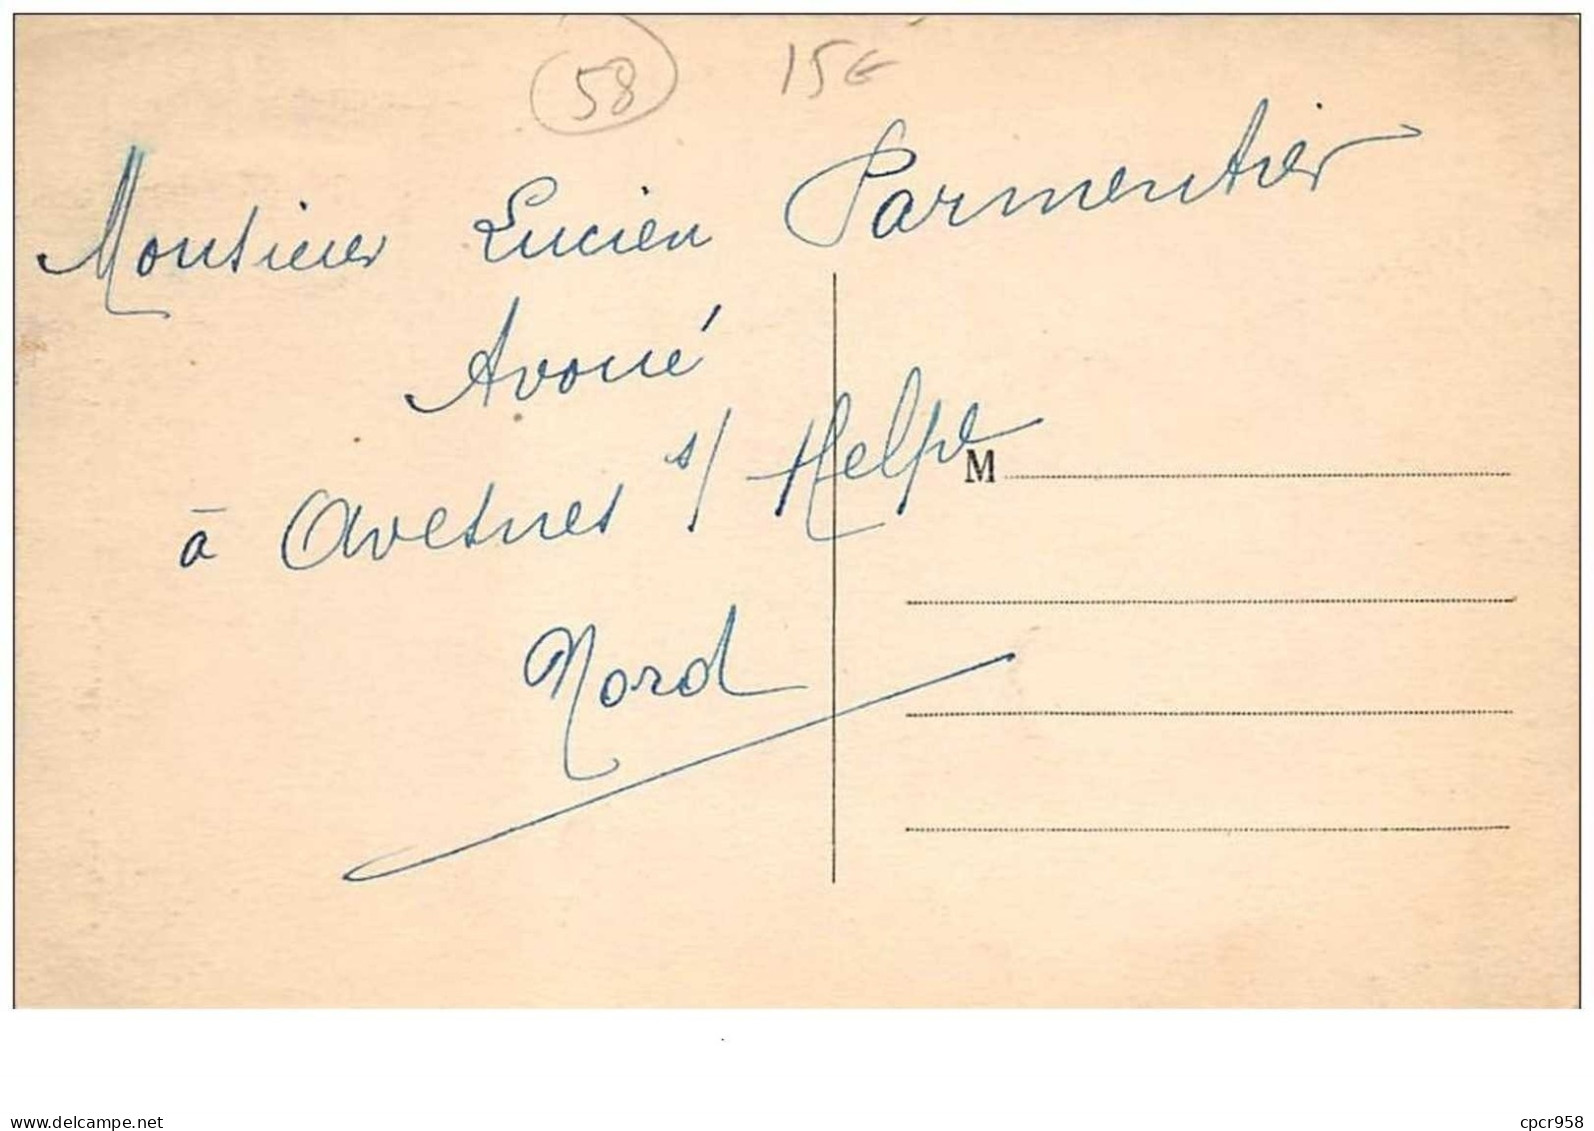 58 15€
Monsieur Lucien Parmentier
Avoué
à Avesnes s/ Helpe
M
Nord
www.delcampe.net cpcr958